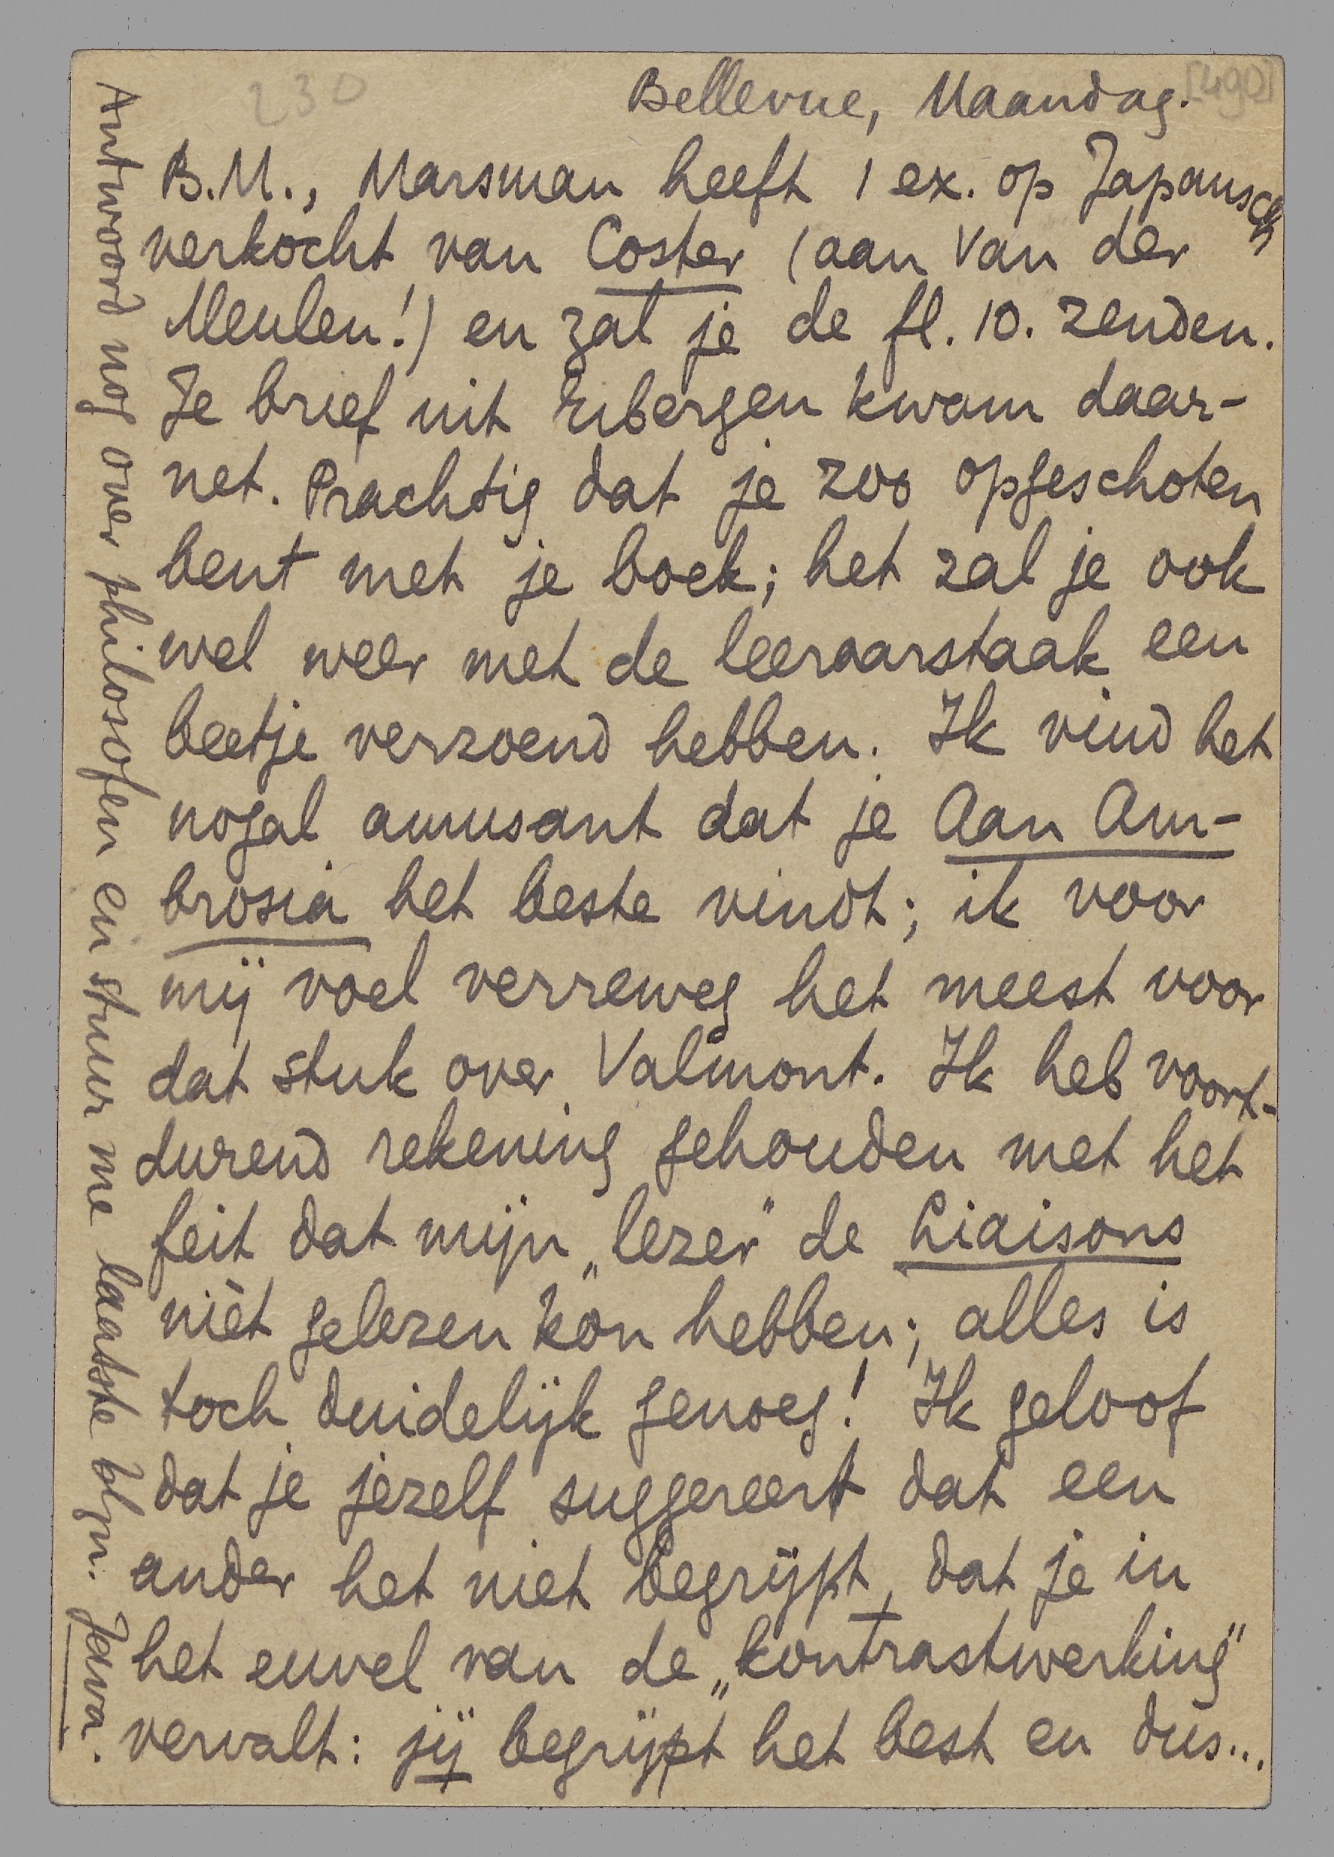 230
[490]
Bellevue, Maandag.
B.M., Marsman heeft 1 ex. op Japansch
verkocht van Coster (aan Van der
Meulen!) en zal je de fl. 10. zenden.
Je brief uit Eibergen kwam daar-
net. Prachtig dat je zoo opgeschoten
bent met je boek; het zal je ook
wel weer met de leeraarstaak een
beetje verzoend hebben. Ik vind het
nogal amusant dat je Aan Am-
brosia het beste vindt; ik voor
mij voel verreweg het meest voor
dat stuk over Valmont. Ik heb voort-
durend rekening gehouden met het
feit dat mijn „lezer" de Liaisons
niét gelezen kòn hebben; alles is
toch duidelijk genoeg! Ik geloof
dat je jezelf suggereert dat een
ander het niet begrijpt, dat je in
het euvel van de „kontrastwerking"
vervalt: jij begrijpt het best en dus...
Antwoord nog over philosofen en stuur me laatste blzn. Jawa.